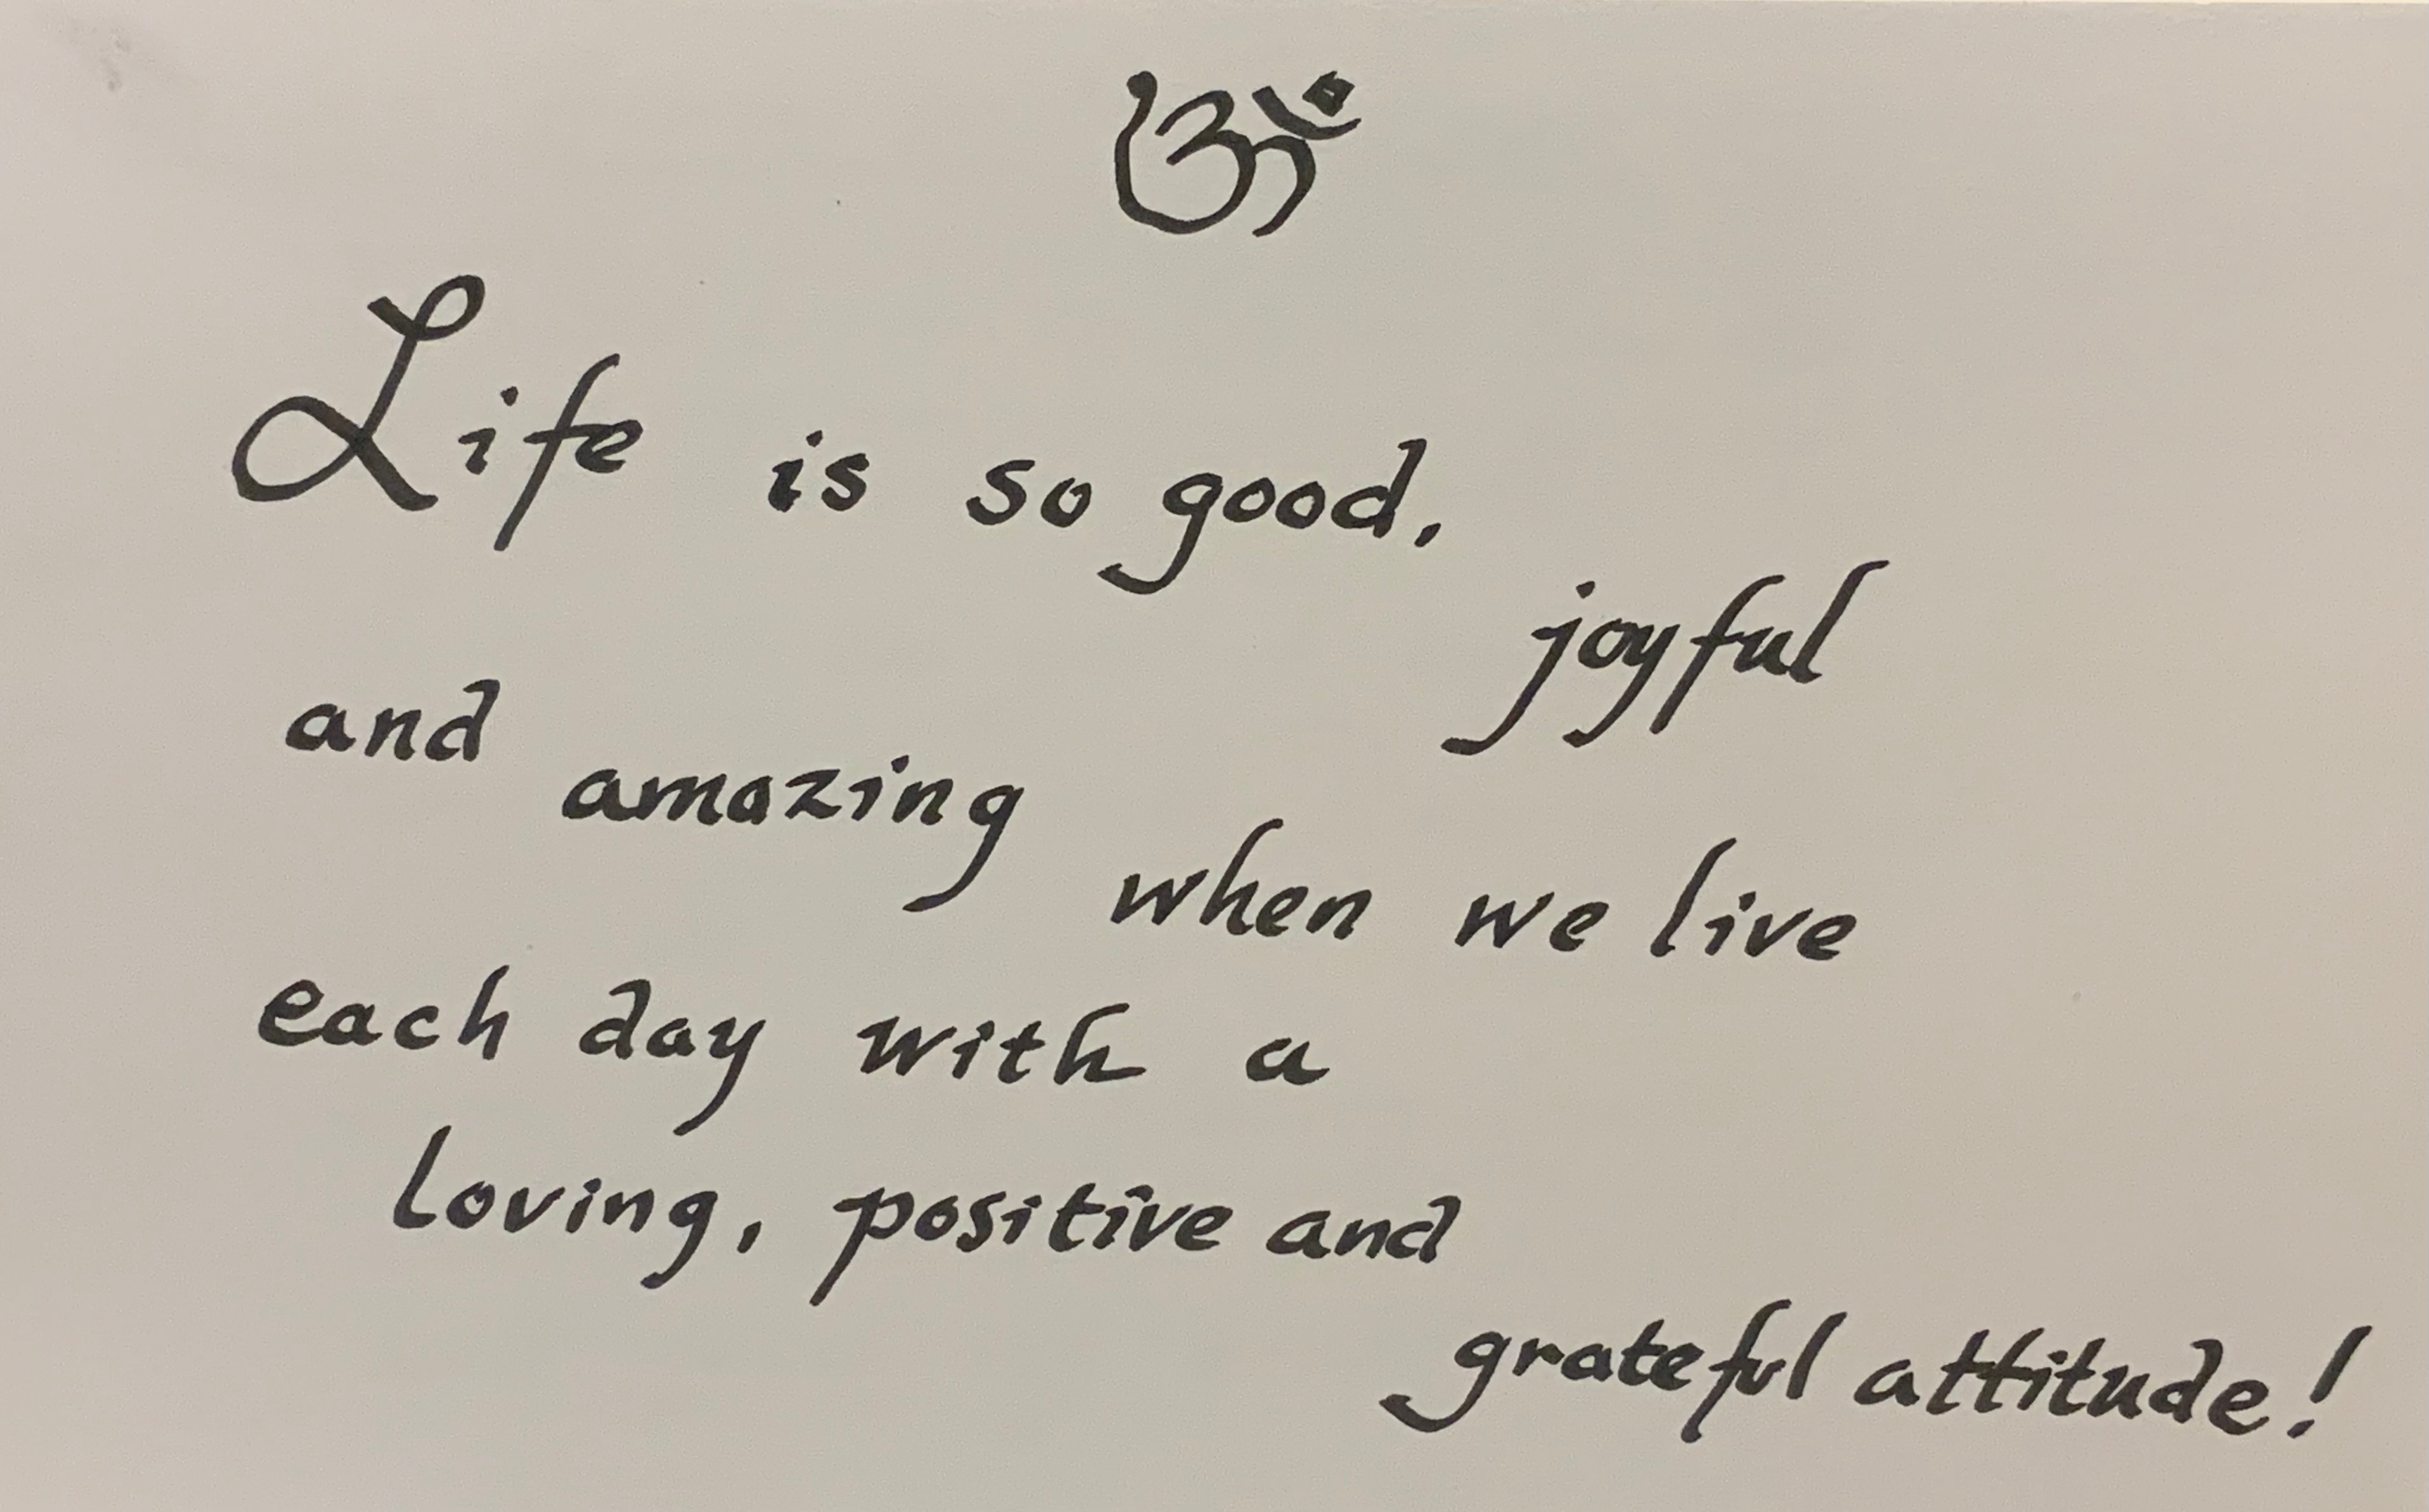 ॐ
Life is so good,
joyful
and amazing
when we live
each day with a
loving, positive and
grateful attitude!